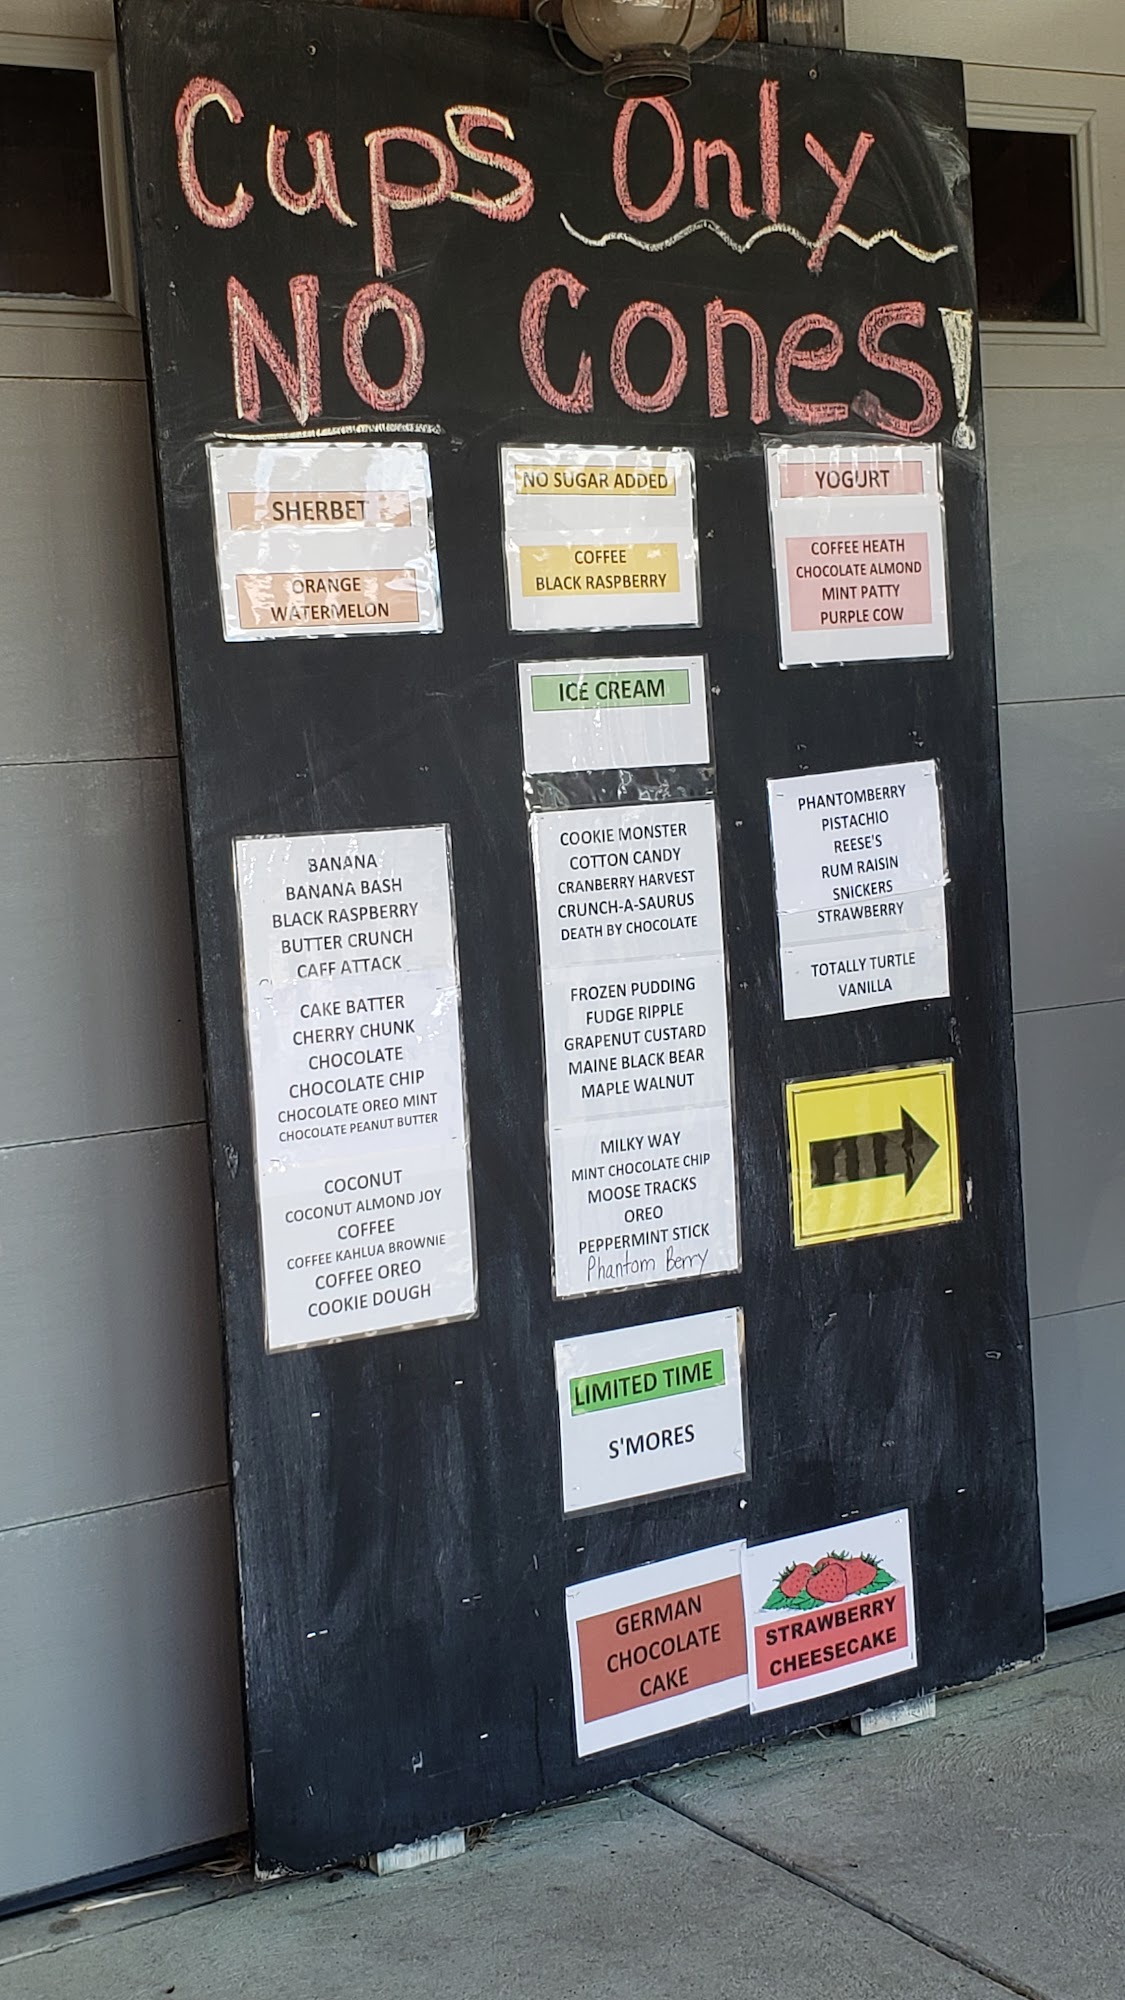 Cups Only
NO Cones!
SHERBET
ORANGE
WATERMELON
NO SUGAR ADDED
COFFEE
BLACK RASPBERRY
YOGURT
COFFEE HEATH
CHOCOLATE ALMOND
MINT PATTY
PURPLE COW
ICE CREAM
BANANA
BANANA BASH
BLACK RASPBERRY
BUTTER CRUNCH
CAFF ATTACK
CAKE BATTER
CHERRY CHUNK
CHOCOLATE
CHOCOLATE CHIP
CHOCOLATE OREO MINT
CHOCOLATE PEANUT BUTTER
COCONUT
COCONUT ALMOND JOY
COFFEE
COFFEE KAHLUA BROWNIE
COFFEE OREO
COOKIE DOUGH
COOKIE MONSTER
COTTON CANDY
CRANBERRY HARVEST
CRUNCH-A-SAURUS
DEATH BY CHOCOLATE
FROZEN PUDDING
FUDGE RIPPLE
GRAPENUT CUSTARD
MAINE BLACK BEAR
MAPLE WALNUT
MILKY WAY
MINT CHOCOLATE CHIP
MOOSE TRACKS
OREO
PEPPERMINT STICK
Phantom Berry
PHANTOMBERRY
PISTACHIO
REESE'S
RUM RAISIN
SNICKERS
STRAWBERRY
TOTALLY TURTLE
VANILLA
LIMITED TIME
S'MORES
GERMAN
CHOCOLATE
CAKE
STRAWBERRY
CHEESECAKE